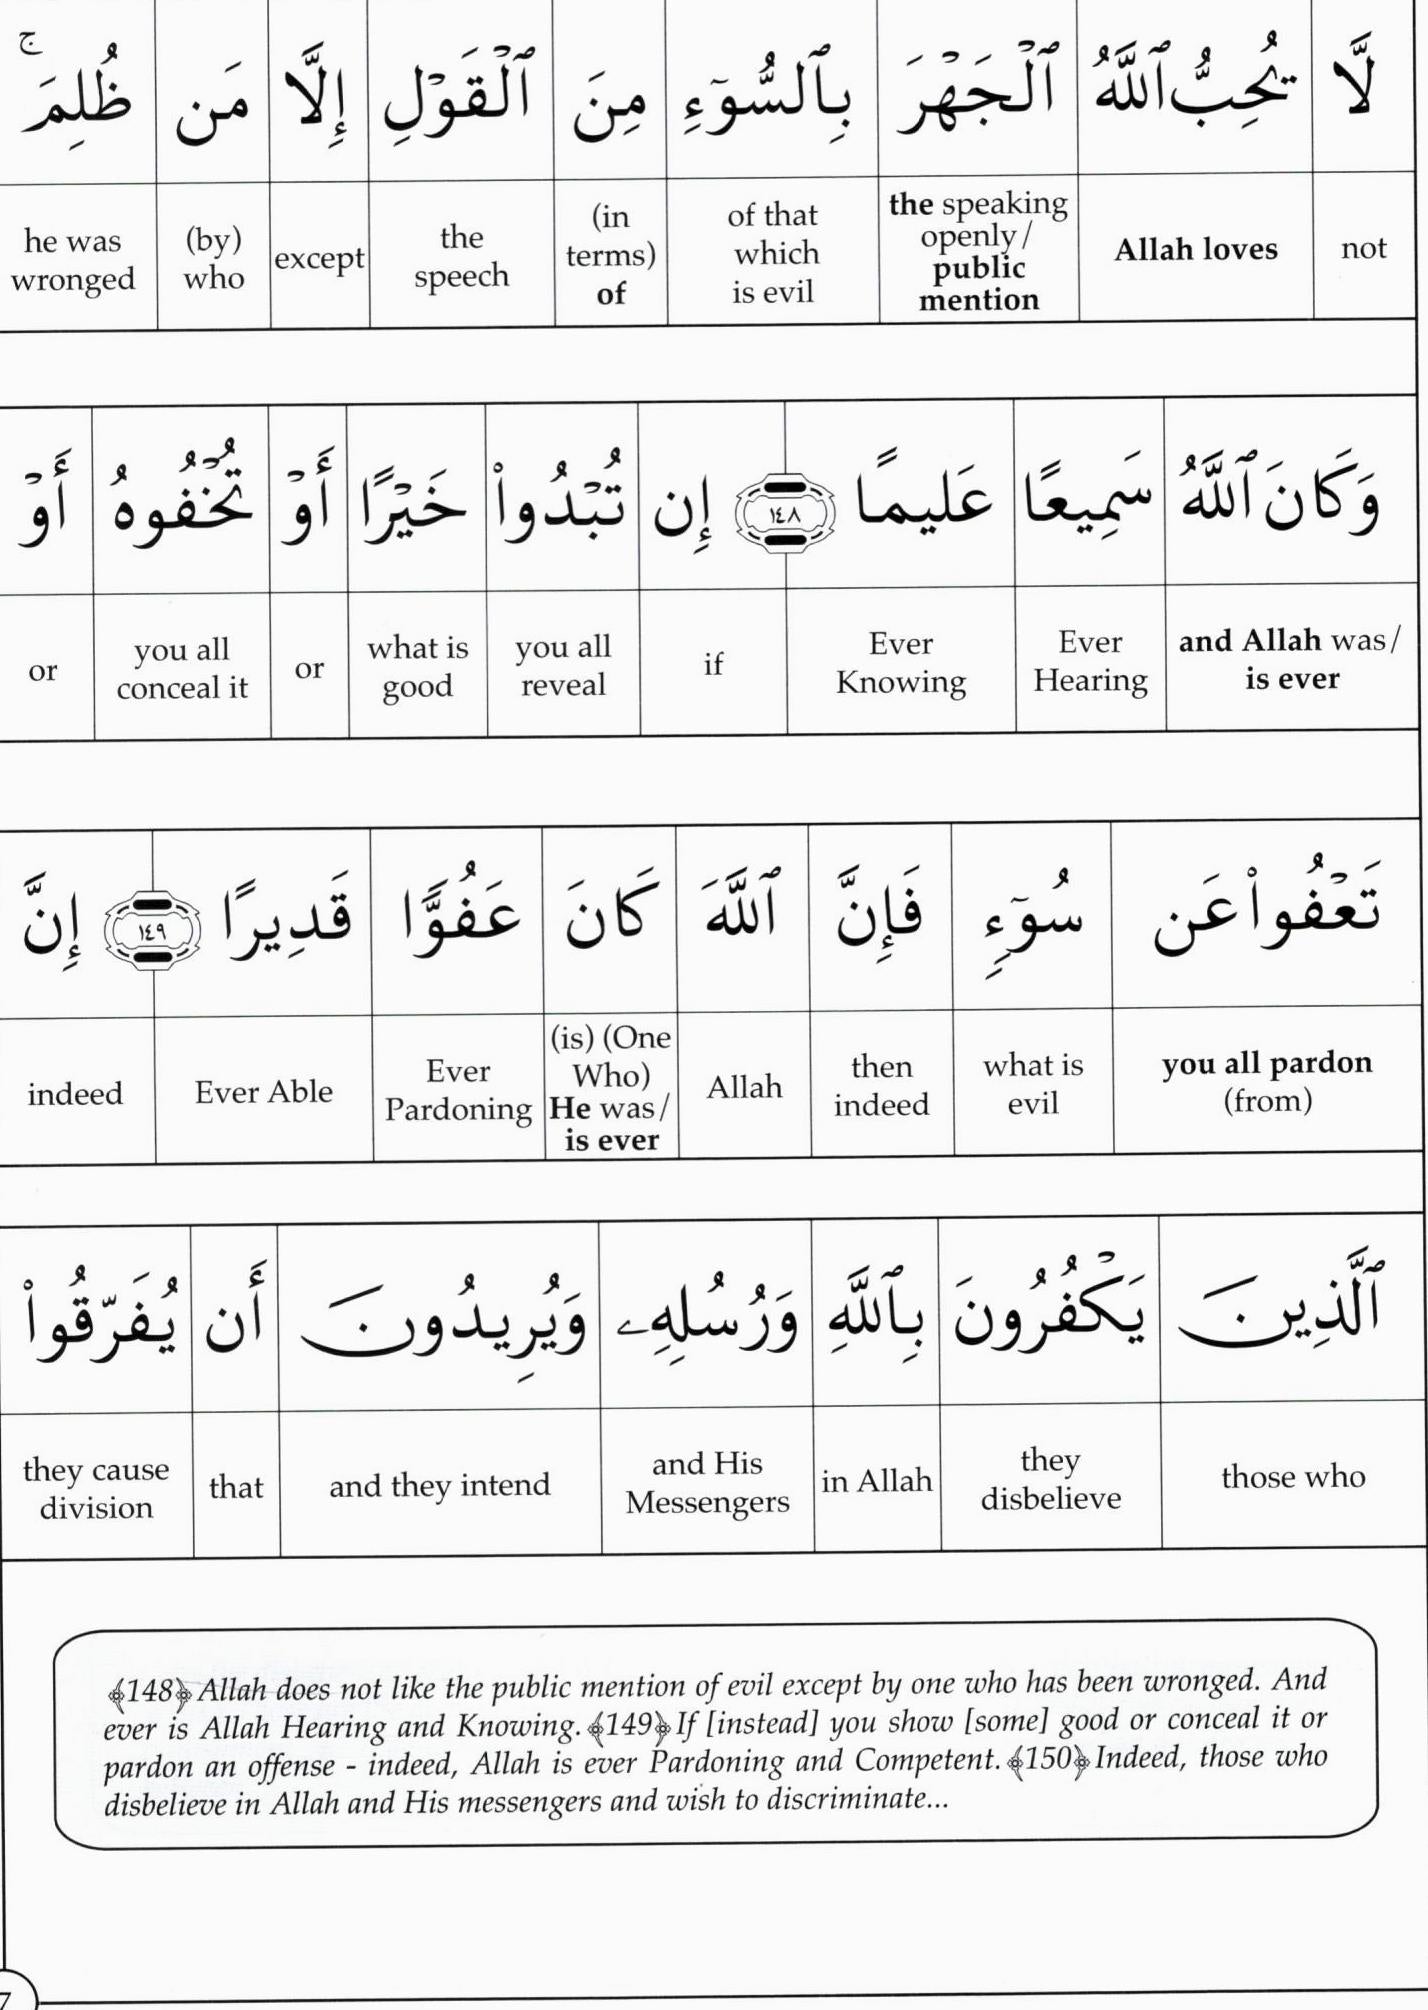 لَّا يُحِبُّ ٱللَّهُ ٱلْجَهْرَ بِٱلسُّوٓءِ مِنَ ٱلْقَوْلِ إِلَّا مَن ظُلِمَ ۚ
not | Allah loves | the speaking openly/ public mention | of that which is evil | (in terms) of | the speech | except | (by) who | he was wronged
وَكَانَ ٱللَّهُ سَمِيعًا عَلِيمًا ١٤٨ إِن تُبْدُوا۟ خَيْرًا أَوْ تُخْفُوهُ أَوْ
and Allah was/ is ever | Ever Hearing | Ever Knowing | if | you all reveal | what is good | or | you all conceal it | or
تَعْفُوا۟ عَن سُوٓءٍ فَإِنَّ ٱللَّهَ كَانَ عَفُوًّا قَدِيرًا ١٤٩ إِنَّ
you all pardon (from) | what is evil | then indeed | Allah | (is) (One Who) He was/ is ever | Ever Pardoning | Ever Able | indeed
ٱلَّذِينَ يَكْفُرُونَ بِٱللَّهِ وَرُسُلِهِۦ وَيُرِيدُونَ أَن يُفَرِّقُوا۟
those who | they disbelieve | in Allah | and His Messengers | and they intend | that | they cause division
﴾148﴿ Allah does not like the public mention of evil except by one who has been wronged. And
ever is Allah Hearing and Knowing. ﴾149﴿ If [instead] you show [some] good or conceal it or
pardon an offense - indeed, Allah is ever Pardoning and Competent. ﴾150﴿ Indeed, those who
disbelieve in Allah and His messengers and wish to discriminate...
7